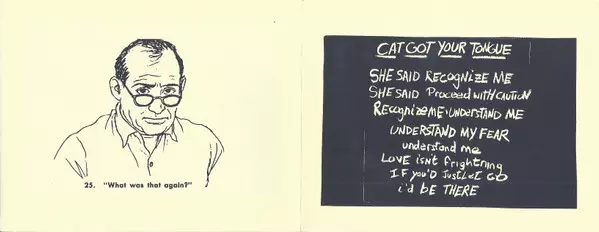 25. "What was that again?"
CAT GOT YOUR TONGUE
SHE SAID RECOGNIZE ME
SHE SAID PROCEED WITH CAUTION
RECOGNIZE ME · UNDERSTAND ME
UNDERSTAND MY FEAR
understand me
LOVE isn't frightning
IF YOU'D JUST LET GO
i'd BE THERE